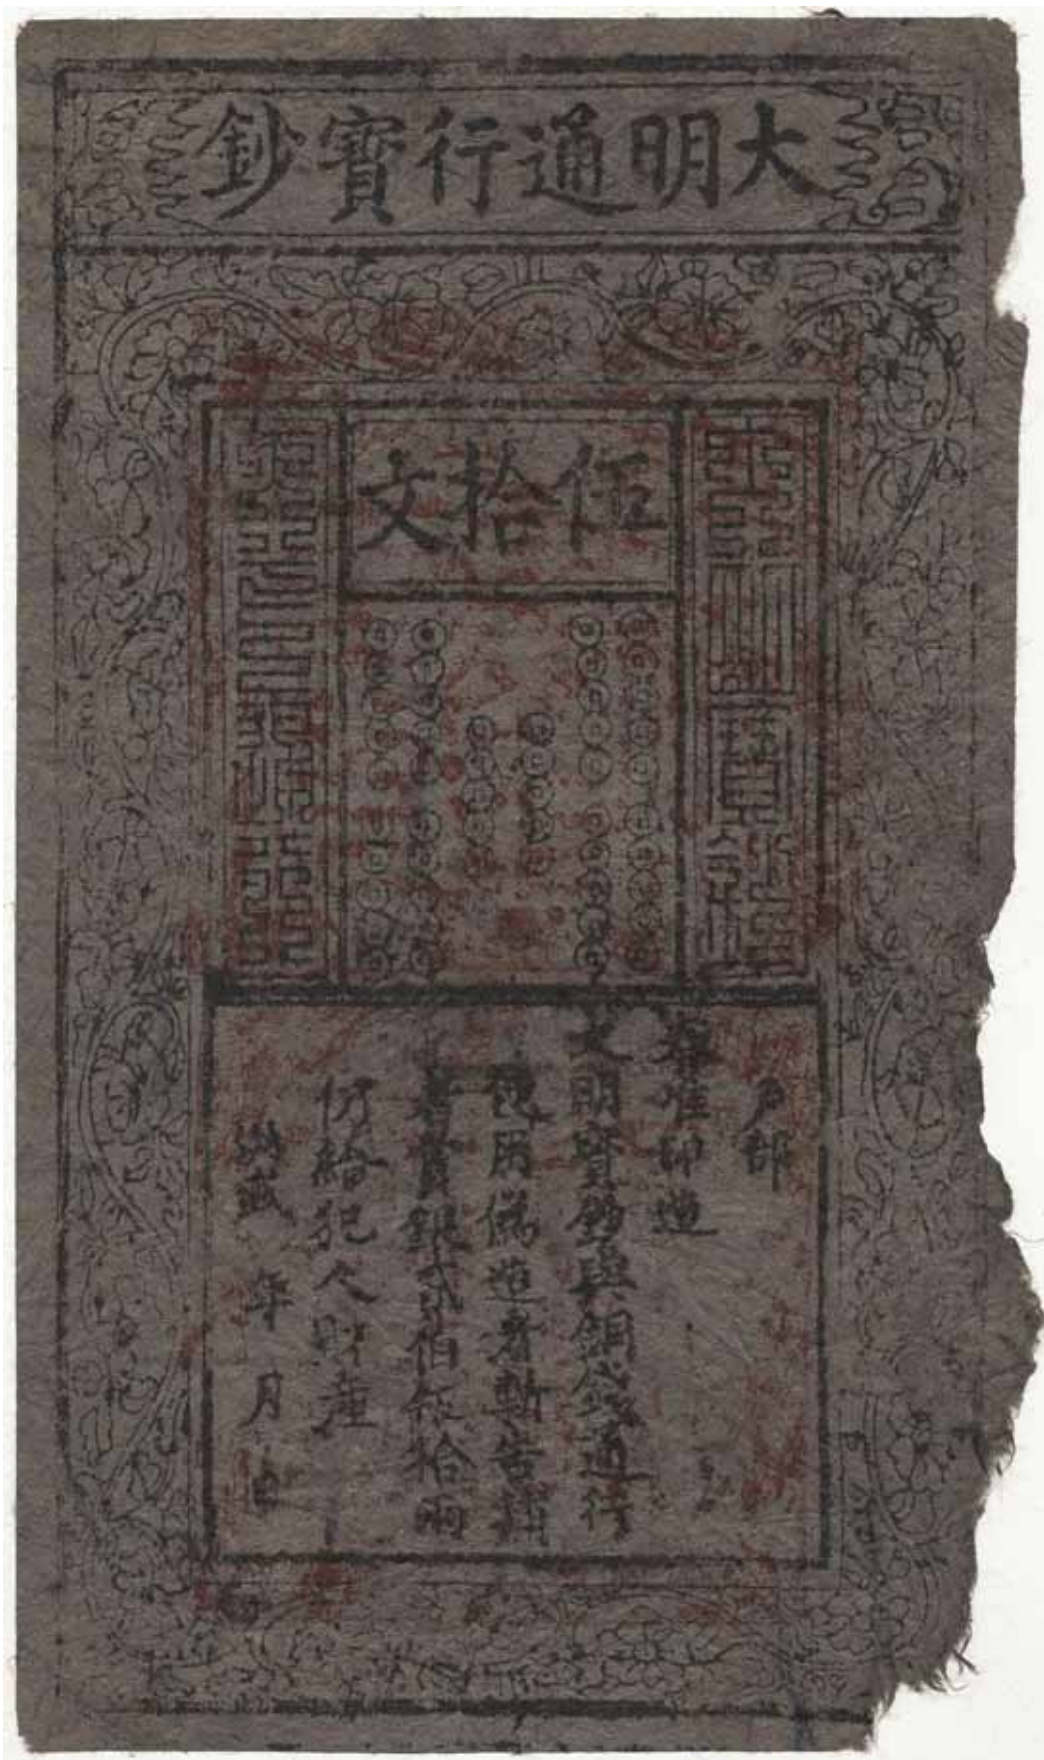 大明通行寶鈔
伍拾文
戶部
奏准印造
大明寶鈔與銅錢通行
使用偽造者斬告捕
者賞銀貳伯伍拾兩
仍給犯人財產
洪武 年 月 日